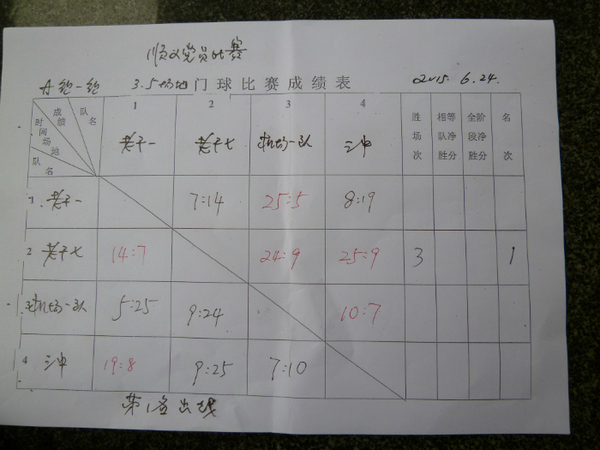 顺义党员比赛
A组一组 3.5场地 门球比赛成绩表 2015.6.24.
成绩 队名 时间 场地 队名 1 2 3 4 胜场次 相等队净胜分 全阶段净胜分 名次
老干一 老干七 机场一队 三中
1 老干一 7:14 25:5 8:19
2 老干七 14:7 24:9 25:9 3 1
3 机场一队 5:25 9:24 10:7
4 三中 19:8 9:25 7:10
第1名出线